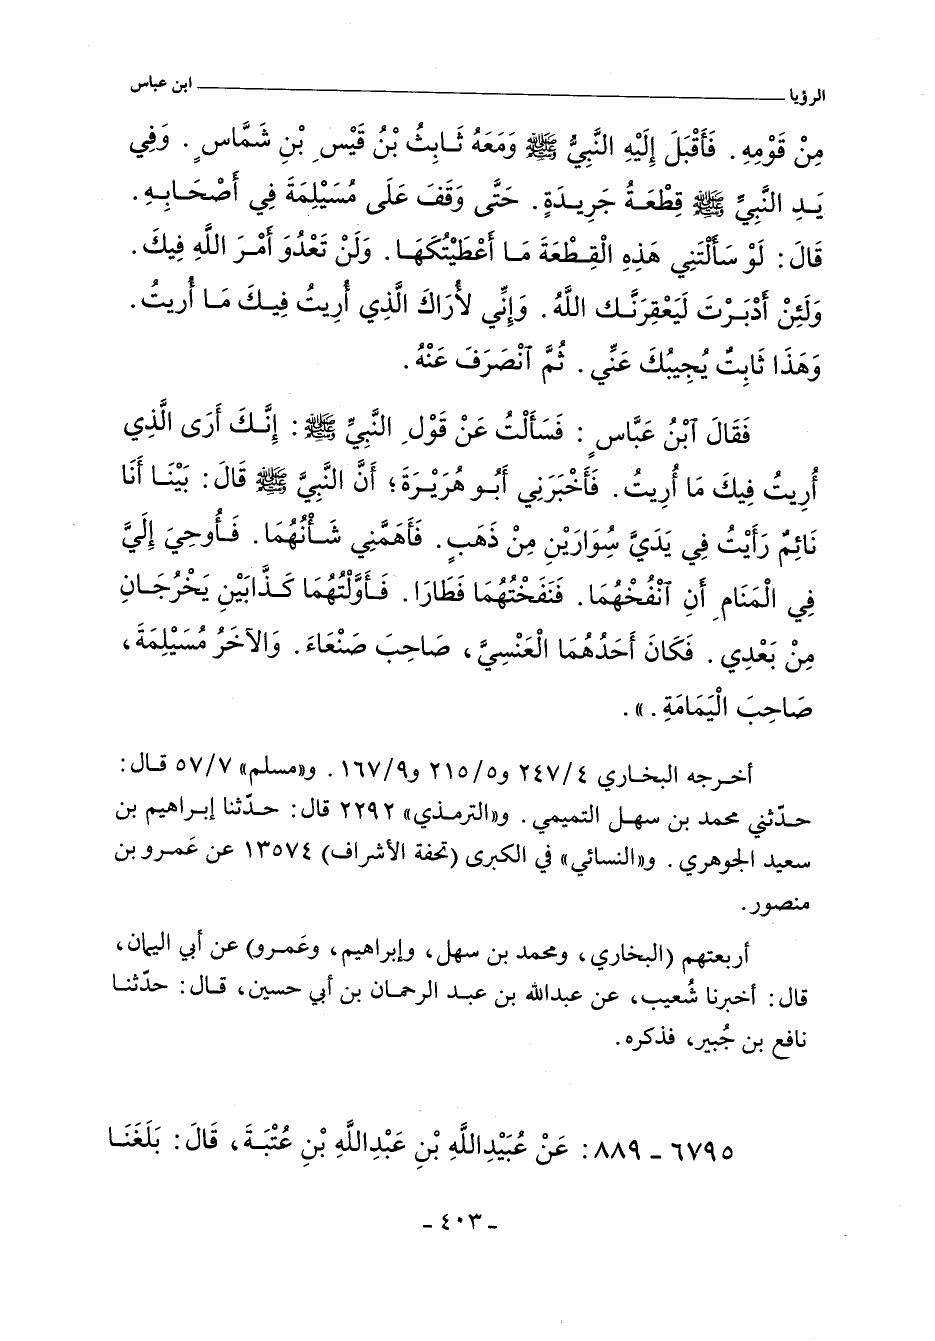 الرؤيا ــــــــــــــــــــــــــــــــــــــــ ابن عباس
مِنْ قَوْمِهِ. فَأَقْبَلَ إِلَيْهِ النَّبِيُّ ﷺ وَمَعَهُ ثَابِتُ بْنُ قَيْسِ بْنِ شَمَّاسٍ. وَفِي
يَدِ النَّبِيِّ ﷺ قِطْعَةُ جَرِيدَةٍ. حَتَّى وَقَفَ عَلَى مُسَيْلِمَةَ فِي أَصْحَابِهِ.
قَالَ: لَوْ سَأَلْتَنِي هَذِهِ الْقِطْعَةَ مَا أَعْطَيْتُكَهَا. وَلَنْ تَعْدُوَ أَمْرَ اللَّهِ فِيكَ.
وَلَئِنْ أَدْبَرْتَ لَيَعْقِرَنَّكَ اللَّهُ. وَإِنِّي لأُرَاكَ الَّذِي أُرِيتُ فِيكَ مَا أُرِيتُ.
وَهَذَا ثَابِتٌ يُجِيبُكَ عَنِّي. ثُمَّ آنْصَرَفَ عَنْهُ.
فَقَالَ آبْنُ عَبَّاسٍ: فَسَأَلْتُ عَنْ قَوْلِ النَّبِيِّ ﷺ: إِنَّكَ أَرَى الَّذِي
أُرِيتُ فِيكَ مَا أُرِيتُ. فَأَخْبَرَنِي أَبُو هُرَيْرَةَ؛ أَنَّ النَّبِيَّ ﷺ قَالَ: بَيْنَا أَنَا
نَائِمٌ رَأَيْتُ فِي يَدَيَّ سِوَارَيْنِ مِنْ ذَهَبٍ. فَأَهَمَّنِي شَأْنُهُمَا. فَأُوحِيَ إِلَيَّ
فِي الْمَنَامِ أَنِ آنْفُخْهُمَا. فَنَفَخْتُهُمَا فَطَارَا. فَأَوَّلْتُهُمَا كَذَّابَيْنِ يَخْرُجَانِ
مِنْ بَعْدِي. فَكَانَ أَحَدُهُمَا الْعَنْسِيَّ، صَاحِبَ صَنْعَاءَ. وَالآخَرُ مُسَيْلِمَةَ،
صَاحِبَ الْيَمَامَةِ.».
أخرجه البخاري ٢٤٧/٤ و٢١٥/٥ و١٦٧/٩. و«مسلم» ٥٧/٧ قال:
حدّثني محمد بن سهل التميمي. و«الترمذي» ٢٢٩٢ قال: حدّثنا إبراهيم بن
سعيد الجوهري. و«النسائي» في الكبرى (تحفة الأشراف) ١٣٥٧٤ عن عَمرو بن
منصور.
أربعتهم (البخاري، ومحمد بن سهل، وإبراهيم، وعَمرو) عن أبي اليمان،
قال: أخبرنا شُعيب، عن عبدالله بن عبد الرحمان بن أبي حسين، قال: حدّثنا
نافع بن جُبير، فذكره.
٦٧٩٥ ـ ٨٨٩: عَنْ عُبَيْدِاللَّهِ بْنِ عَبْدِاللَّهِ بْنِ عُتْبَةَ، قَالَ: بَلَغَنَا
ـ ٤٠٣ ـ